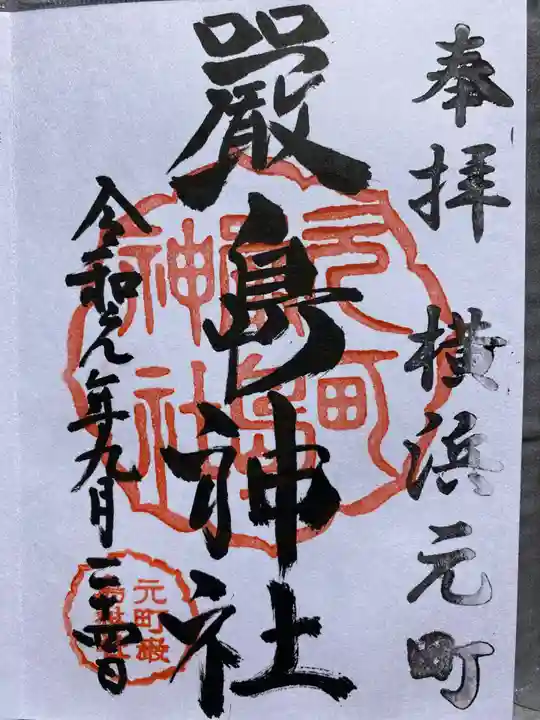 奉拝 横浜元町
嚴島神社
令和元年九月二十四日
元町
嚴島
神社
元町嚴
島神社